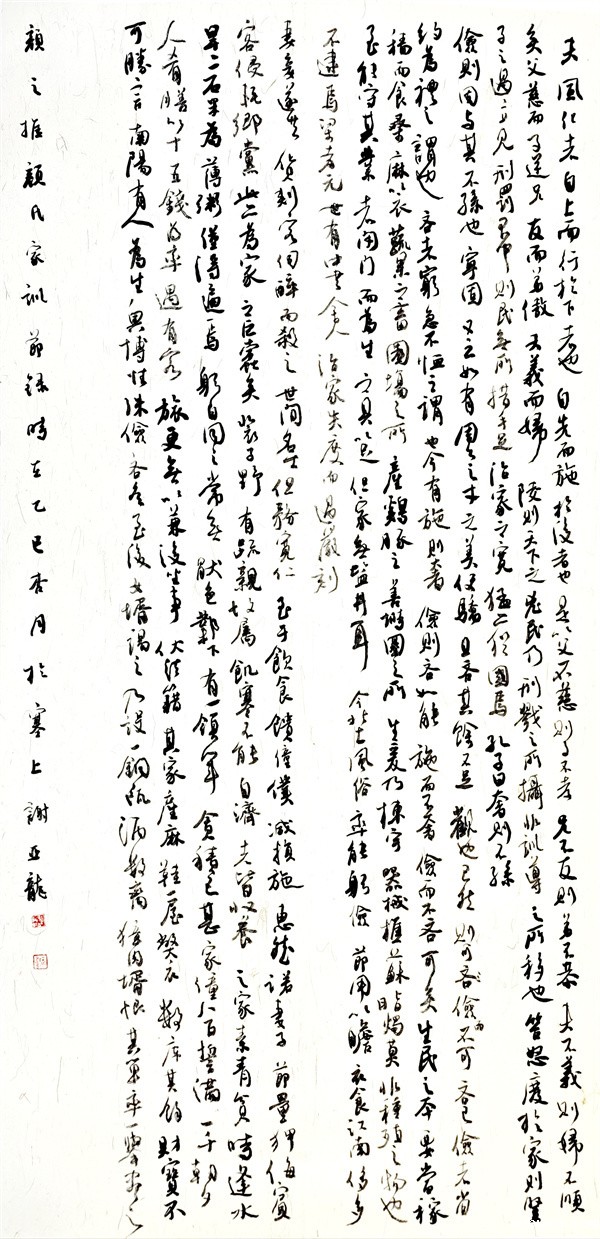 夫風化者自上而行於下者也自先而施於後者也是以父不慈則子不孝兄不友則弟不恭夫不義則婦不順
矣父慈而子逆兄友而弟傲夫義而婦陵則天下之兇民乃刑戮之所攝非訓導之所移也笞怒廢於家則豎
子之過立見刑罰不中則民無所措手足治家之寬猛亦猶國焉孔子曰奢則不孫
儉則固與其不孫也寧固又云如有周公之才之美使驕且吝其餘不足觀也已然則可儉而不可吝已儉者省
約為禮之謂也吝者窮急不恤之謂也今有施則奢儉則吝如能施而不奢儉而不吝可矣生民之本要當稼
穡而食桑麻以衣蔬果之畜園場之所產鷄豚之善塒圈之所生爰及棟宇器械樵蘇脂燭莫非種殖之物也
至能守其業者閉門而為生之具以足但家無鹽井耳今北土風俗率能躬儉節用以贍衣食江南侈多
不逮焉梁孝元世有中書舍人治家失度而過嚴刻
妻妾遂共貨刺客伺醉而殺之世間名士但務寬仁至于飲食饋僮僕減損施惠然諾妻子節量狎侮賓
客侵耗鄉黨此亦為家之巨蠹矣裴子野有疏親故屬飢寒不能自濟者皆收養之家素青貧時逢水
旱二石米為薄粥僅得遍焉躬自同之常無厭色鄴下有一領軍貪積已甚家僮八百誓滿一千朝夕
人肴膳以十五錢為率遇有客旅更無以兼後坐事伏法籍其家產麻鞋一屋弊衣數庫其餘財寶不
可勝言南陽有人為生奧博性殊儉吝冬至後女壻謁之乃設一銅甌酒數臠獐肉壻恨其單率一舉盡之
顏之推顏氏家訓節錄時在乙巳杏月於塞上謝亞龍